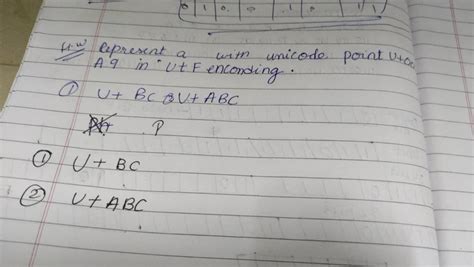 0 1 0 0 1 0 1 1
H.W Represent a with unicode point U+00
A9 in UTF enconding.
① U+ BC & U+ ABC
P
① U+ BC
② U+ ABC